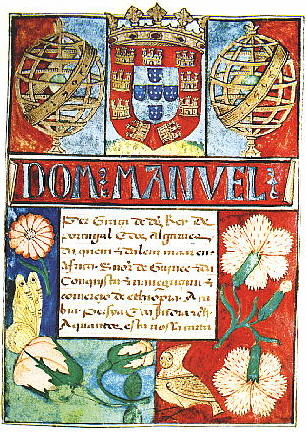 DOM: MANVEL
Per Graça de ds Rey de
portugal E dos Algarves
da quem E dalem mar em
africa Snor de Guinee E da
Conquista E navegaçam E
comercio de ethiopia Ara
bia persya E da
A quantos esta nosa carta